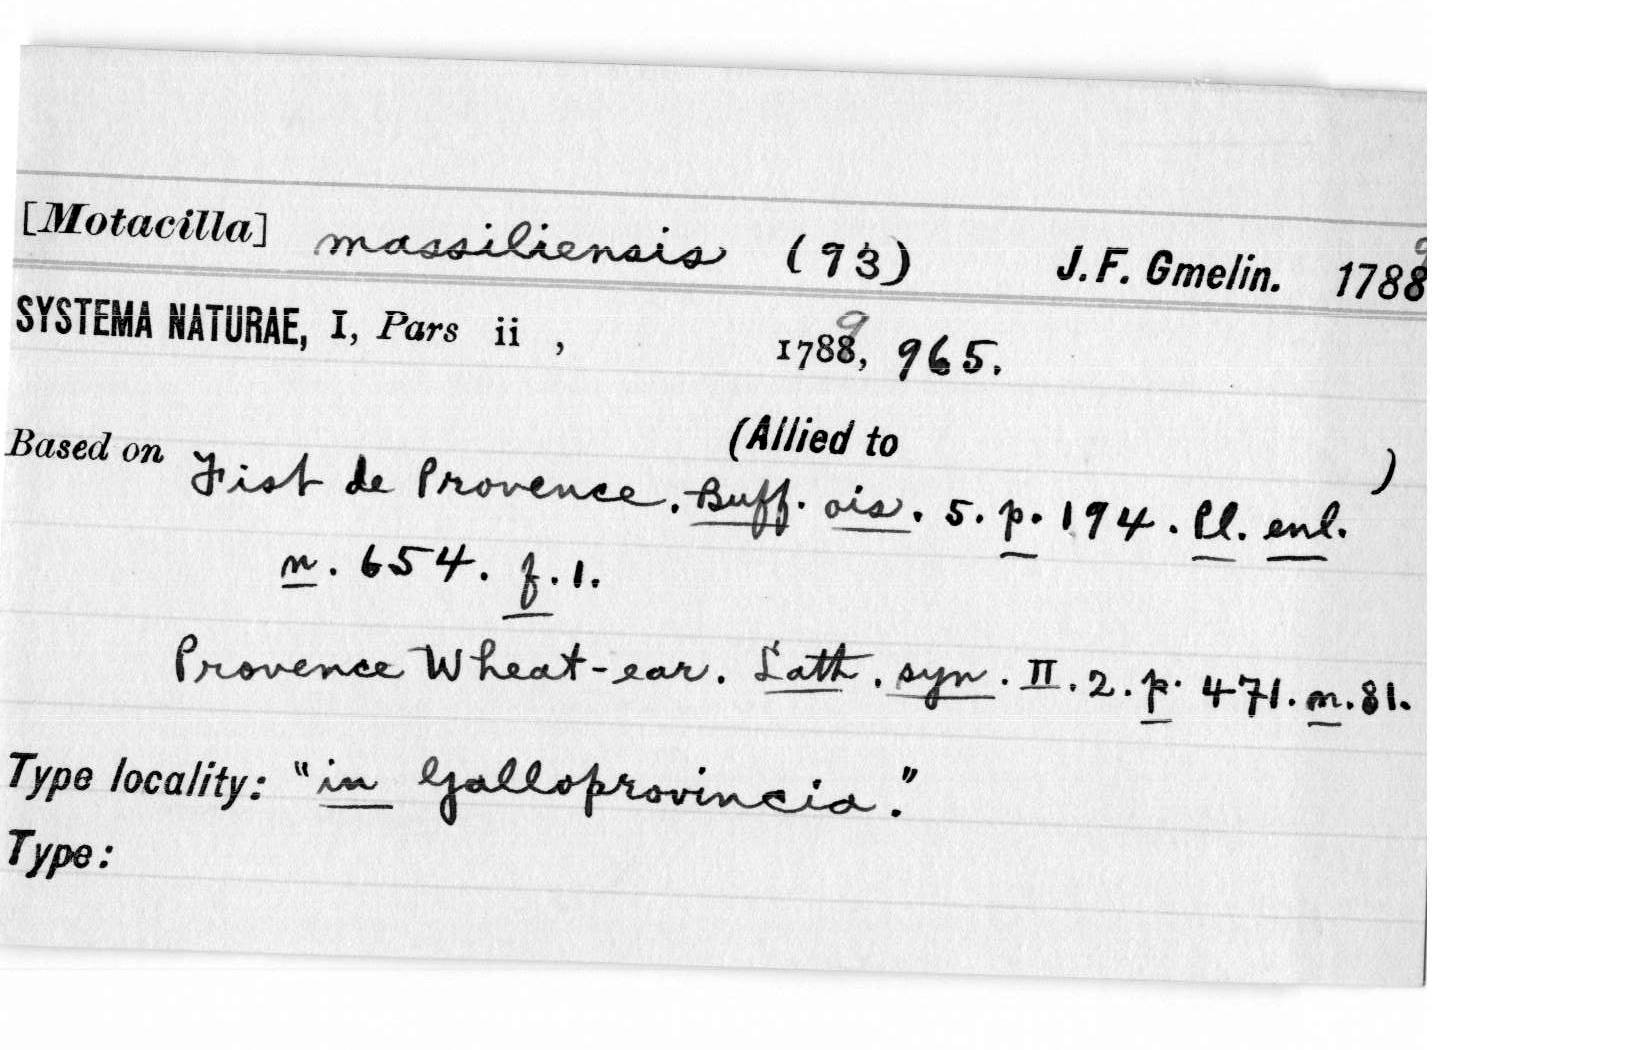 [Motacilla] massiliensis (93) J. F. Gmelin. 1788 9
SYSTEMA NATURAE, I, Pars ii , 1788, 9 965.
Based on (Allied to )
Fist de Provence. Buff. ois. 5. p. 194. Pl. enl.
n. 654. f. 1.
Provence Wheat-ear. Lath. syn. II. 2. p. 471. n. 81.
Type locality: "in Galloprovincia."
Type: